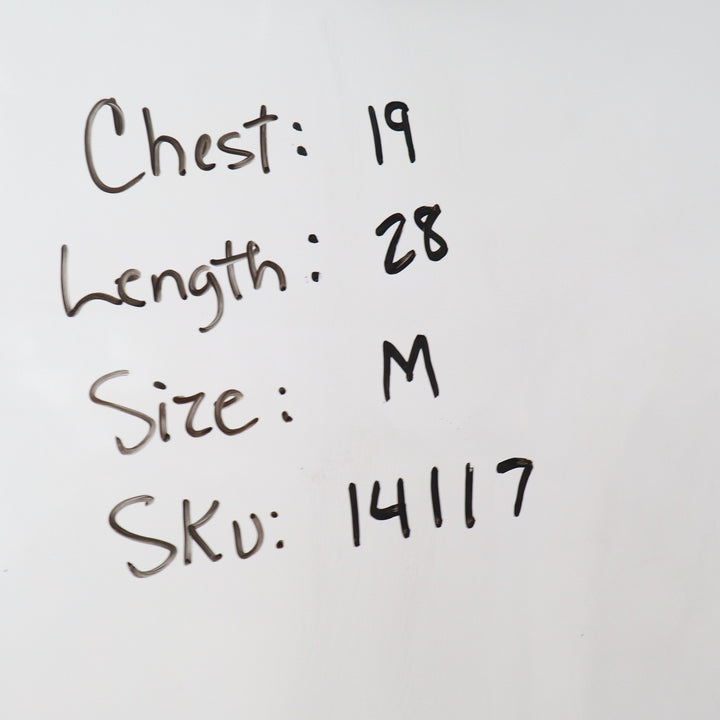 Chest: 19
Length: 28
Size: M
SKU: 14117